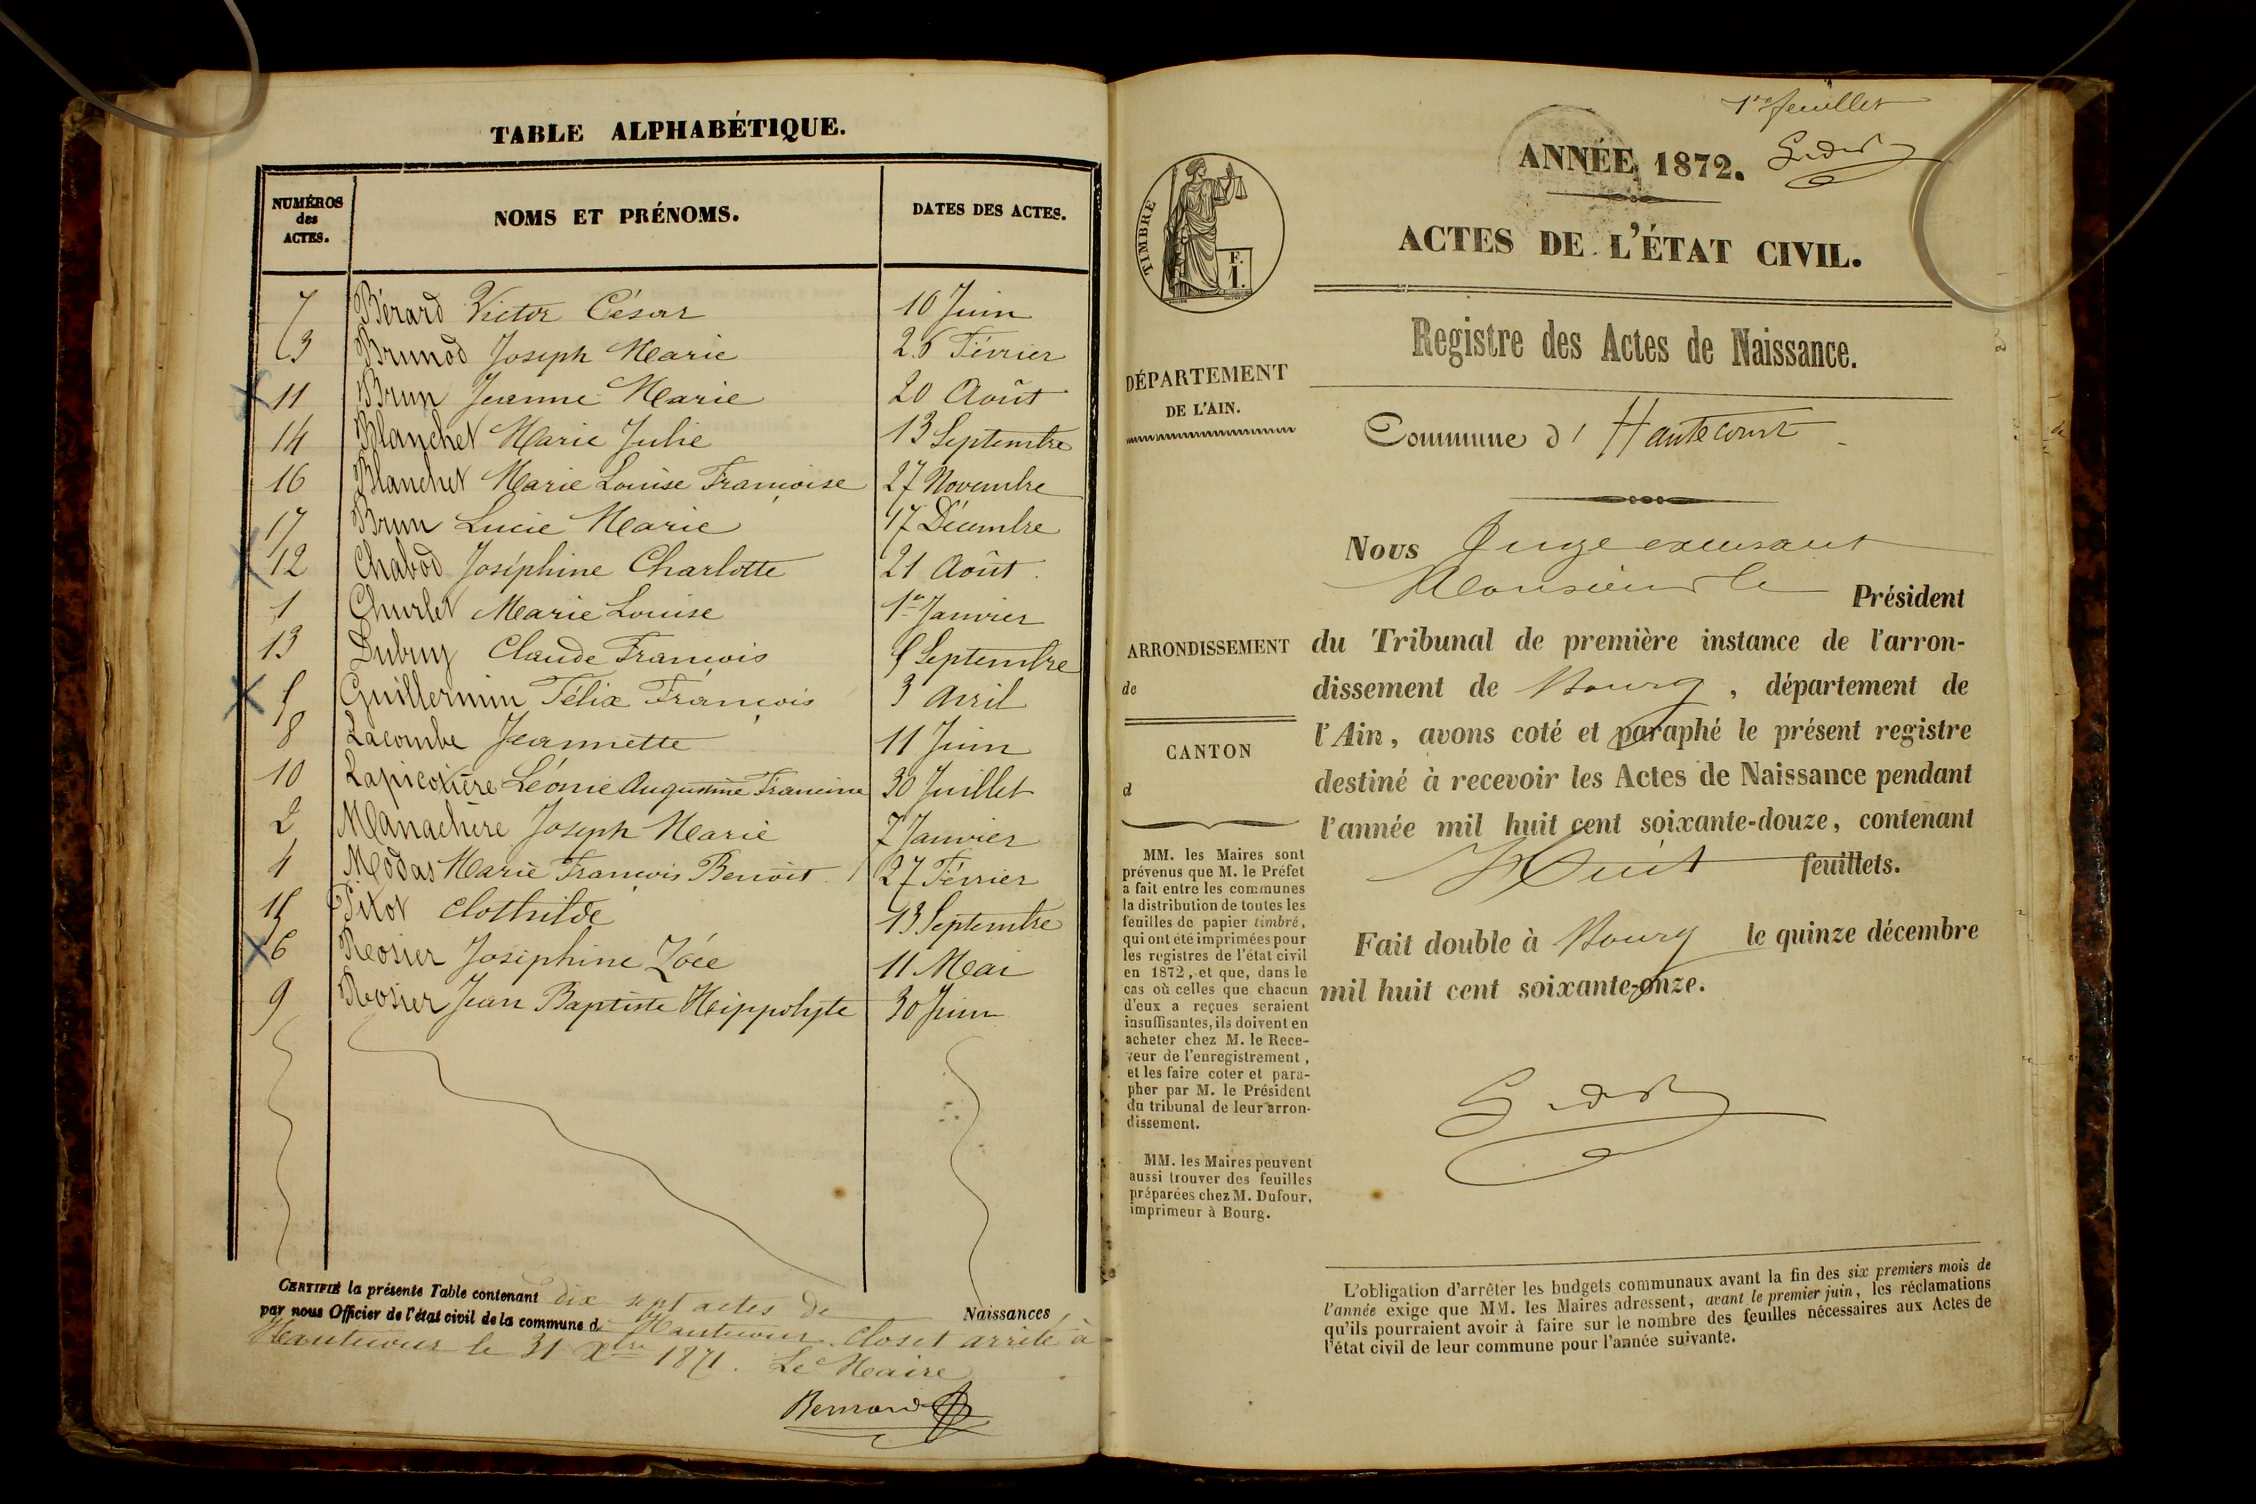 TABLE ALPHABÉTIQUE.
NUMÉROS des ACTES. NOMS ET PRÉNOMS. DATES DES ACTES.
7 Bérard Victor César 10 Juin
3 Brunod Joseph Marie 26 Février
11 Brun Jeanne Marie 20 Août
14 Blanchet Marie Julie 13 Septembre
16 Blanchet Marie Louise Françoise 27 Novembre
17 Brun Lucie Marie 17 Décembre
12 Chabod Joséphine Charlotte 21 Août
1 Churlet Marie Louise 1er Janvier
13 Dubuy Claude François 5 Septembre
5 Guillermin Félix François 3 Avril
8 Lacombe Jeannette 11 Juin
10 Lapicotière Léonie Augustine Francine 30 Juillet
2 Manachère Joseph Marie 7 Janvier
4 Modas Marie François Benoit 27 Février
15 Pitot Clothilde 13 Septembre
6 Rosier Joséphine Zóée 11 Mai
9 Rosier Jean Baptiste Hippolyte 30 Juin
CERTIFIÉ la présente Table contenant dix sept actes de Naissances
par nous Officier de l'état civil de la commune d' Hautecour. Clos et arrêté à
Hautecour le 31 Xbre 1871. Le Maire
Bernard
1er feuillet
ANNÉE 1872.
ACTES DE L'ÉTAT CIVIL.
TIMBRE
F.
1.
Registre des Actes de Naissance.
DÉPARTEMENT
DE L'AIN.
Commune d' Hautecourt
Nous Juge excusant
Monsieur le Président
du Tribunal de première instance de l'arron-
dissement de Bourg, département de
l'Ain, avons coté et paraphé le présent registre
destiné à recevoir les Actes de Naissance pendant
l'année mil huit cent soixante-douze, contenant
Huit feuillets.
Fait double à Bourg le quinze décembre
mil huit cent soixante-onze.
ARRONDISSEMENT
de
CANTON
d
MM. les Maires sont
prévenus que M. le Préfet
a fait entre les communes
la distribution de toutes les
feuilles de papier timbré,
qui ont été imprimées pour
les registres de l'état civil
en 1872, et que, dans le
cas où celles que chacun
d'eux a reçues seraient
insuffisantes, ils doivent en
acheter chez M. le Rece-
veur de l'enregistrement,
et les faire coter et para-
pher par M. le Président
du tribunal de leur arron-
dissement.
MM. les Maires peuvent
aussi trouver des feuilles
préparées chez M. Dufour,
imprimeur à Bourg.
L'obligation d'arrêter les budgets communaux avant la fin des six premiers mois de
l'année exige que MM. les Maires adressent, avant le premier juin, les réclamations
qu'ils pourraient avoir à faire sur le nombre des feuilles nécessaires aux Actes de
l'état civil de leur commune pour l'année suivante.